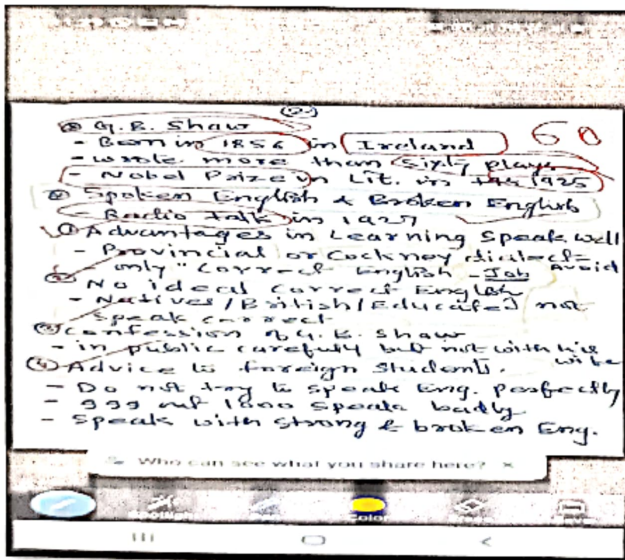 (2)
⊗ G. B. Shaw
- Born in 1856 in Ireland 60
- wrote more than sixty plays
- Nobel Prize in Lit. in the 1925
⊗ Spoken English & Broken English
- Radio talk in 1927
① Advantages in Learning Speak well
- Provincial or Cockney dialect - avoid
- only "correct English - Job
② No ideal correct English
- Natives/British/Educated not
speak correct
③ Confession of G. B. Shaw
- in public carefully but not with his wife
④ Advice to foreign students.
- Do not try to speak Eng. perfectly
- 999 out 1000 speak badly
- speak with strong & broken Eng.
Who can see what you share here? ×
Spotlight Color